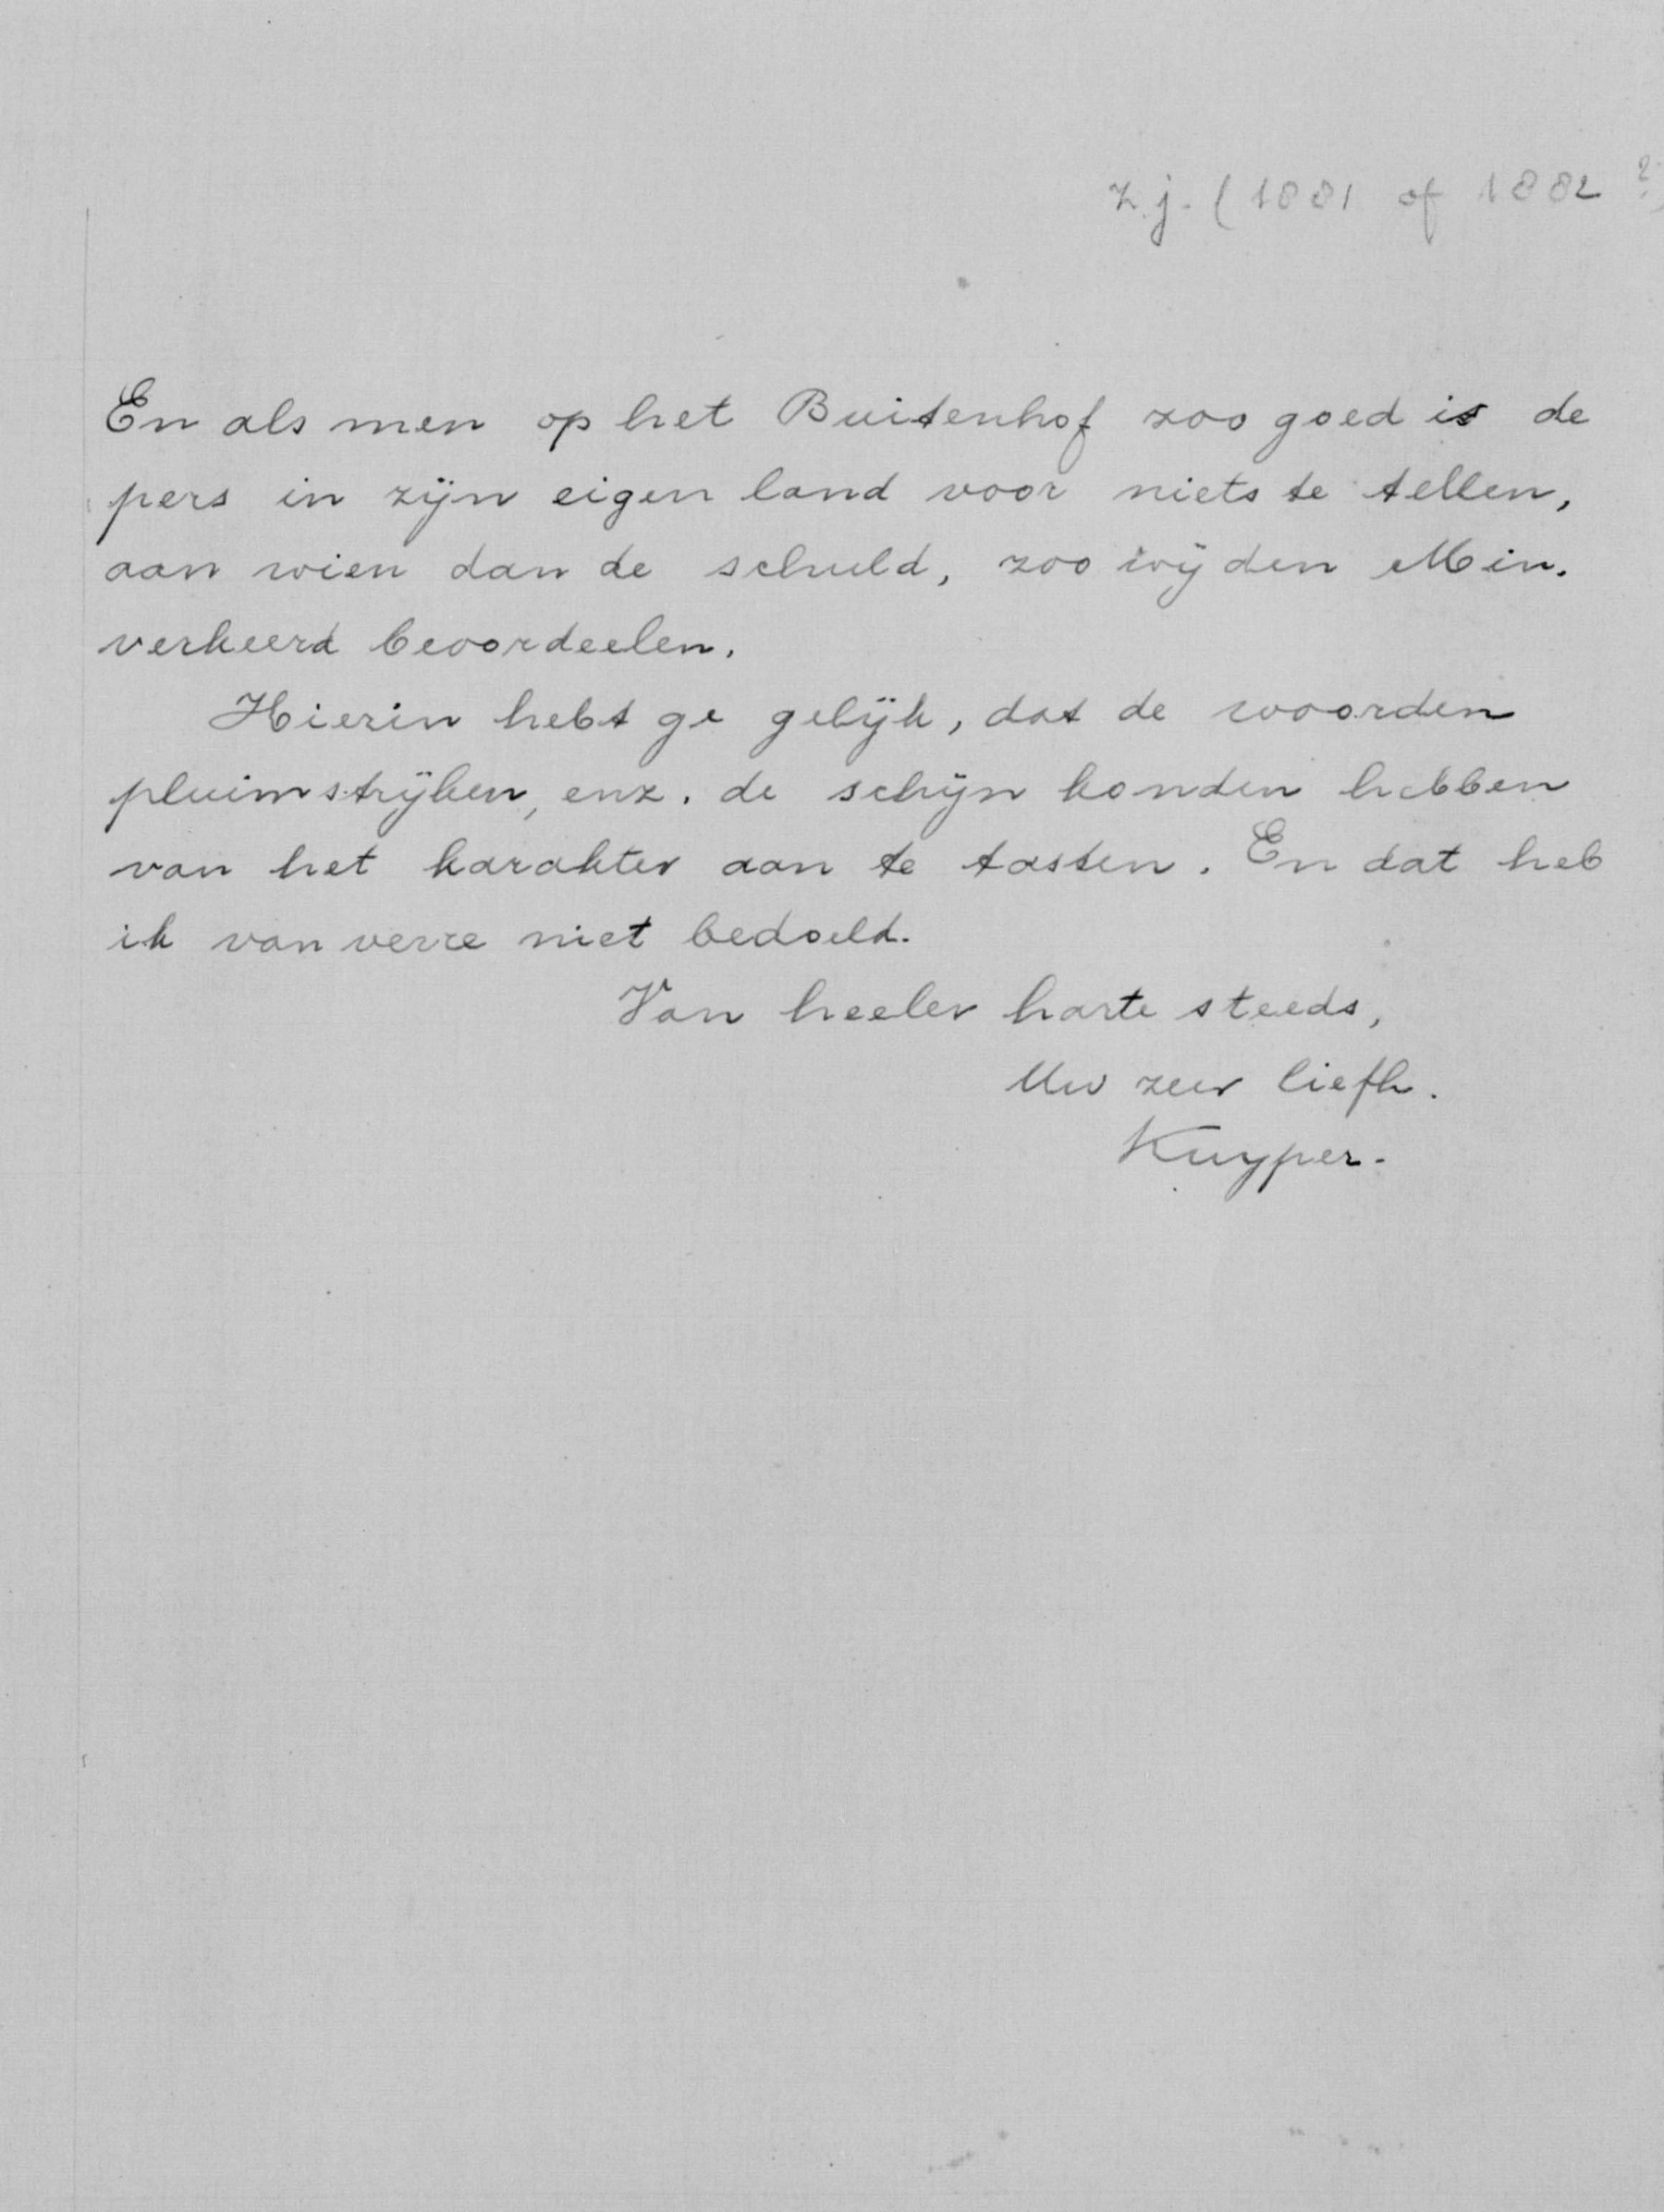 z.j. (1881 of 1882 ?)
En als men op het Buitenhof zoo goed is de
pers in zijn eigen land voor niets te tellen,
aan wien dan de schuld, zoo wij den Min.
verkeerd beoordeelen.
Hierin hebt ge gelijk, dat de woorden
pluimstrijken, enz. de schijn konden hebben
van het karakter aan te tasten. En dat heb
ik van verre niet bedoeld.
Van heeler harte steeds,
Uw zeer liefh.
Kuyper.